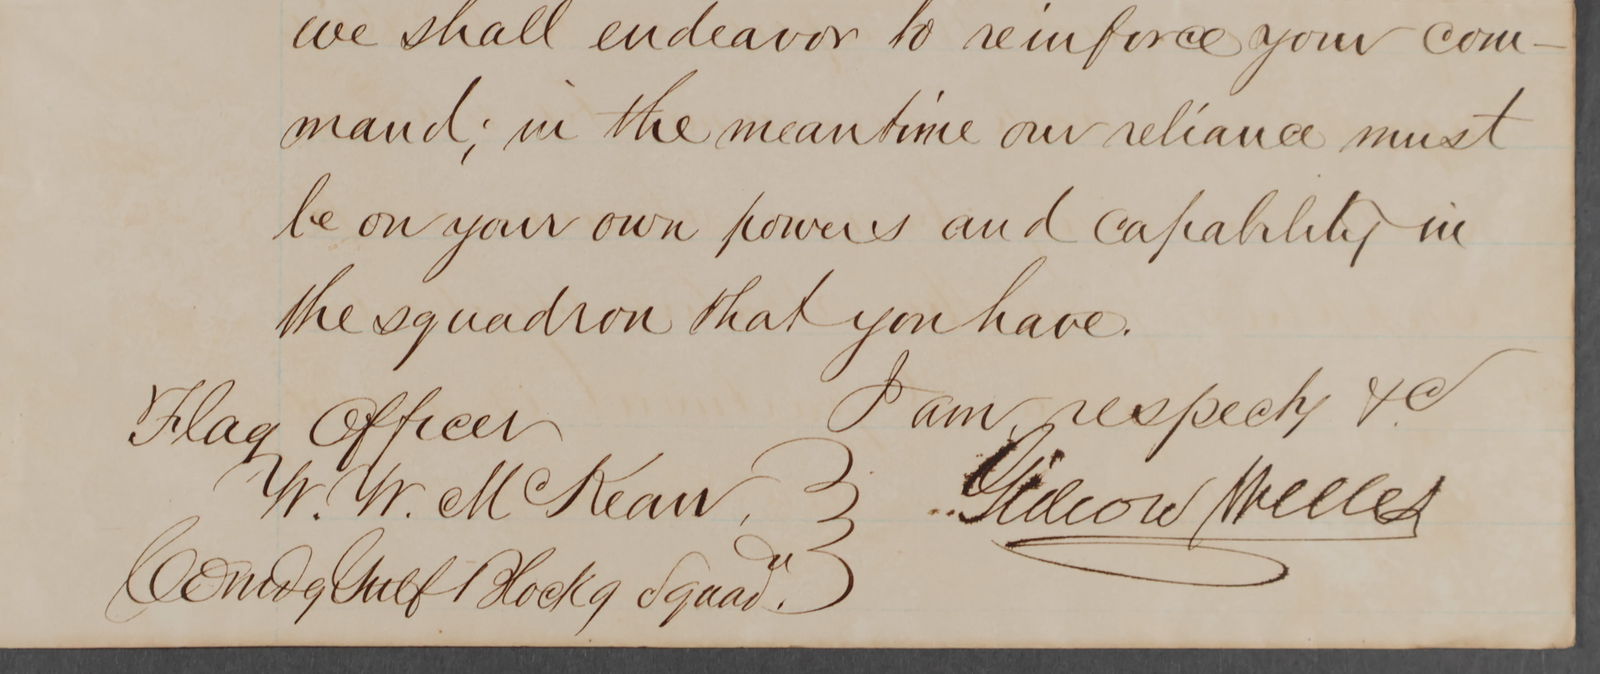 we shall endeavor to reinforce your com-
mand; in the meantime our reliance must
be on your own powers and capability in
the squadron that you have.
I am, respecty &c
Gideon Welles
Flag Officer
W. W. McKean,
Comdg Gulf Blockg Squadn.